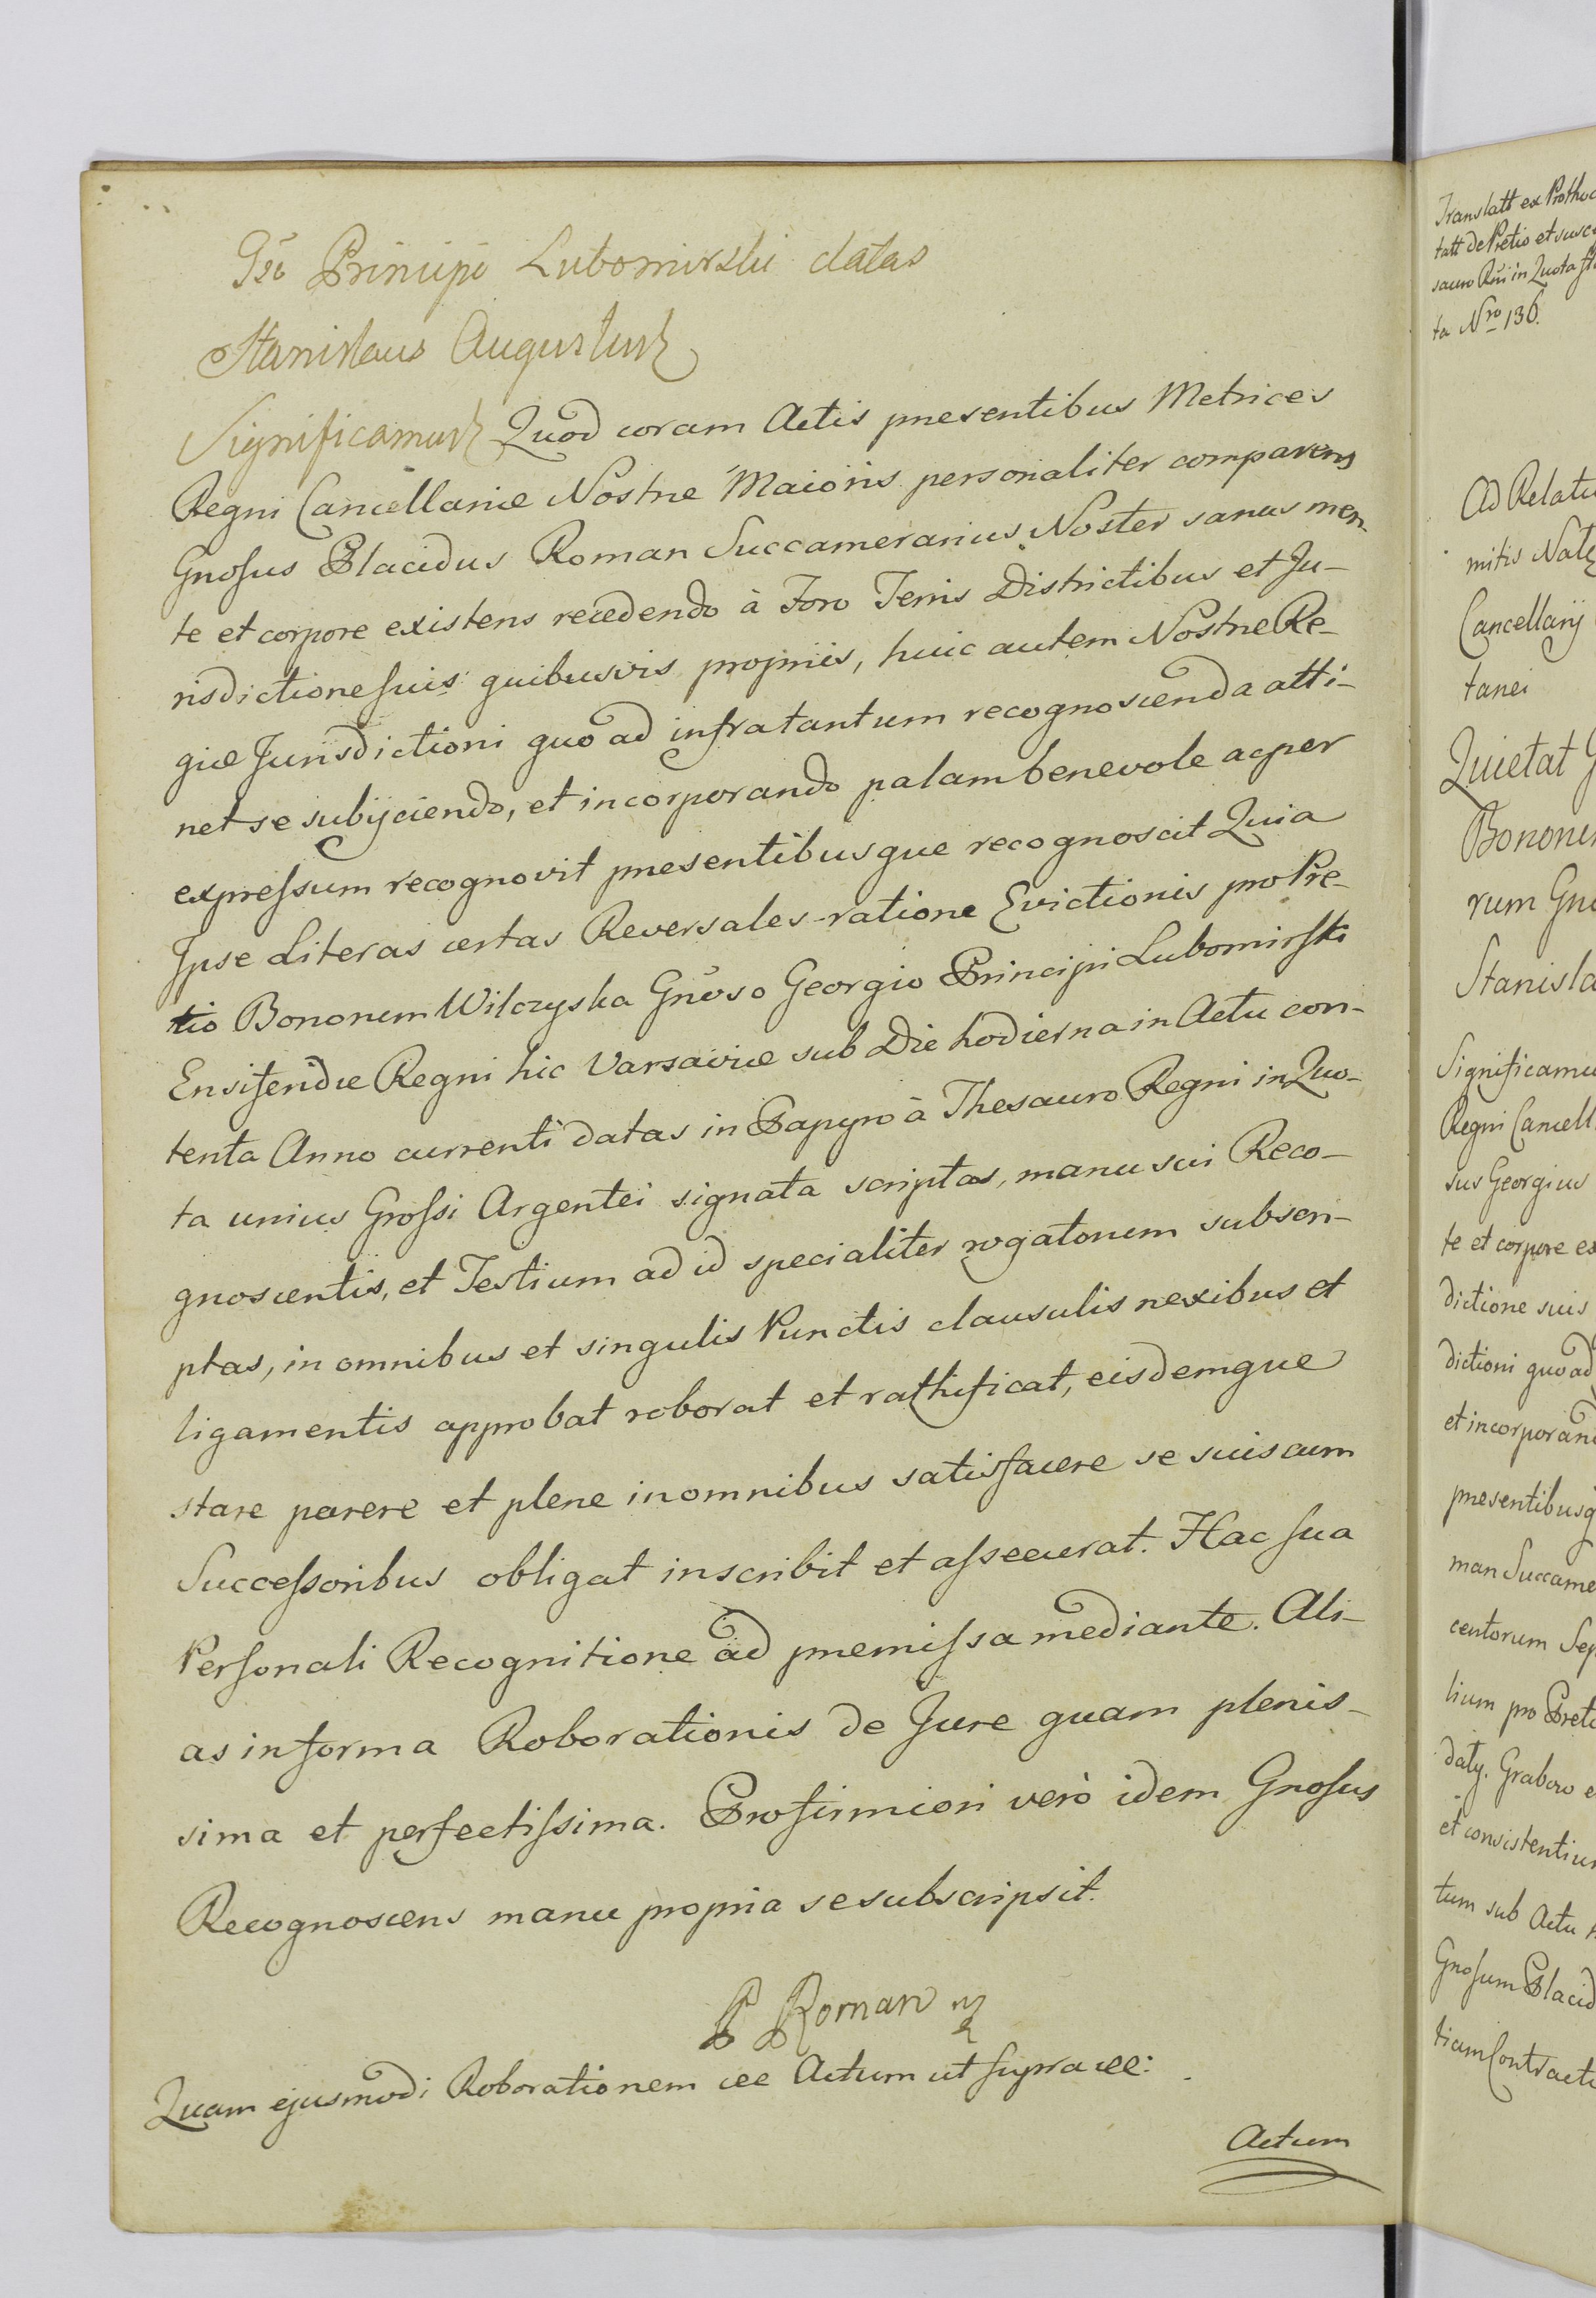 Gso Principi Lubomirski datas
Stanislaus Augustus
Significamus Quod coram Actis præsentibus Metrices
Regni Cancellariæ Nostræ Maioris personaliter comparens
Gnosus Placidus Roman Succamerarius Noster sanus men-
te et corpore existens recedendo à Foro Terris Districtibus et Ju-
risdictione suis quibusvis propriis, huic autem Nostræ Re-
giæ Jurisdictioni quo ad infra tantum recognoscenda atti-
net se subijciendo, et incorporando palam benevole ac per
expressum recognovit præsentibusque recognoscit Quia
Ipse Literas certas Reversales ratione Evictionis pro Pre-
tio Bonorum Wilczyska Gnoso Georgio Principi Lubomirski
Ensiferidæ Regni hic Varsaviæ sub Die hodierna in Actu con-
tenta Anno currenti datas in Papyro à Thesauro Regni in Quo-
ta unius Grossi Argentei signata scriptas, manu sui Reco-
gnoscentis, et Testium ad id specialiter rogatorum subscri-
ptas, in omnibus et singulis Punctis clausulis nexibus et
ligamentis approbat roborat et rathificat, eisdemque
stare parere et plene in omnibus satisfacere se suis cum
Successoribus obligat inscribit et assecurat. Hac sua
Personali Recognitione ad præmissa mediante. Ali-
as in forma Roborationis de Jure quam plenis-
sima et perfectissima. Pro firmiori verò idem Gnosus
Recognoscens manu propria se subscripsit.
P Roman
Quam ejusmodi Roborationem cec Actum ut supra cec:
Actum
Translatt ex
tatt de Pretio et
sauro Rni in Quota
ta Nro 136.
Ad
mitis
Cancellarij
tanei
Quietat
rum
Significamu
Regni Cancell
sus Georgius
te et corpore
dictione suis
dictioni quo ad
et incorporan
præsentibusq
man Succame
centorum
lium pro
Grabow
et consistentiu
tum sub Actu
Gnosum Placid